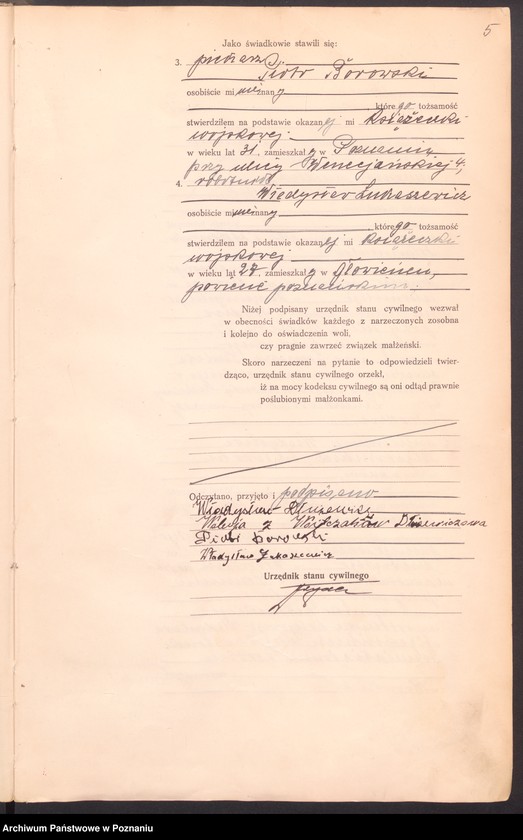 5
Jako świadkowie stawili się:
3. piekarz
Piotr Borowski
osobiście mi nieznany
, którego tożsamość
stwierdziłem na podstawie okazanej mi książeczki
wojskowej.
w wieku lat 31, zamieszkały w Poznaniu
przy ulicy Wenecjańskiej 4,
4. robotnik
Władysław Łukaszewicz
osobiście mi nieznany
, którego tożsamość
stwierdziłem na podstawie okazanej mi książeczki
wojskowej
w wieku lat 27, zamieszkały w Głowieńcu,
powiat poznańskim.
Niżej podpisany urzędnik stanu cywilnego wezwał
w obecności świadków każdego z narzeczonych zosobna
i kolejno do oświadczenia woli,
czy pragnie zawrzeć związek małżeński.
Skoro narzeczeni na pytanie to odpowiedzieli twier-
dząco, urzędnik stanu cywilnego orzekł,
iż na mocy kodeksu cywilnego są oni odtąd prawnie
poślubionymi małżonkami.
Odczytano, przyjęto i podpisano
Władysław
z
Piotr Borowski
Władysław Łukaszewicz
Urzędnik stanu cywilnego
Archiwum Państwowe w Poznaniu